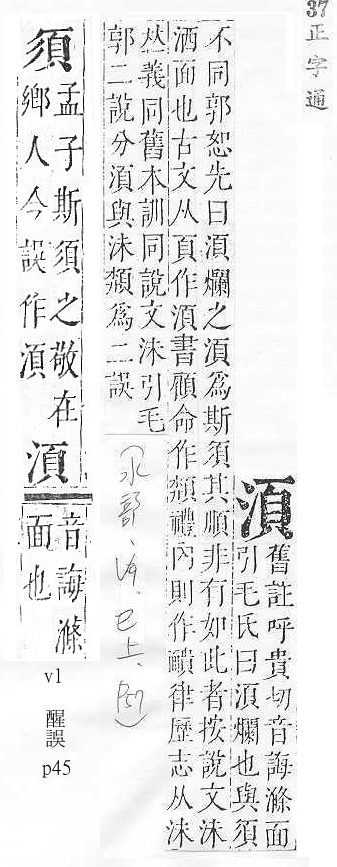 37 正字通
湏
舊註呼貴切音誨滌面
引毛氏曰湏爛也與須
不同郭恕先曰湏爛之湏爲斯須其順非有如此者按說文沬
洒面也古文从頁作湏書顧命作頮禮內則作靧律歷志从沬
𠀤義同舊本訓同說文沬引毛
郭二說分湏與沬頮爲二誤
(水部、巳上、P57)
須
孟子斯須之敬在
鄉人今誤作湏
湏
音誨滌
面也
v1
醒誤
p45